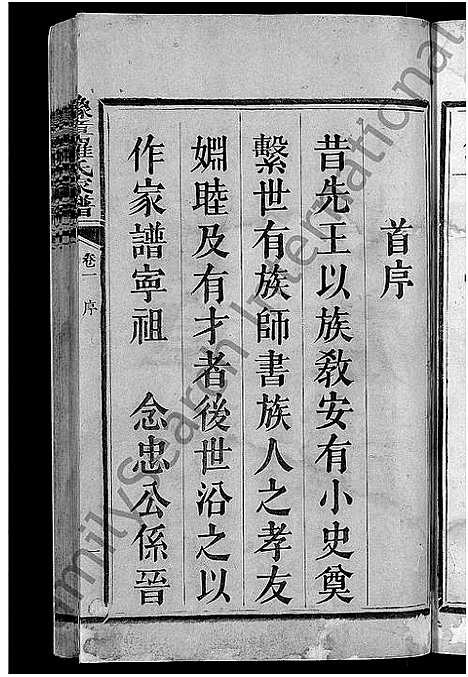 首序
昔先王以族敎安有小史奠
繫世有族師書族人之孝友
婣睦及有才者後世沿之以
作家譜寧祖　念忠公係晉
豫章羅氏家譜
卷一　序
一
FamilySearch International